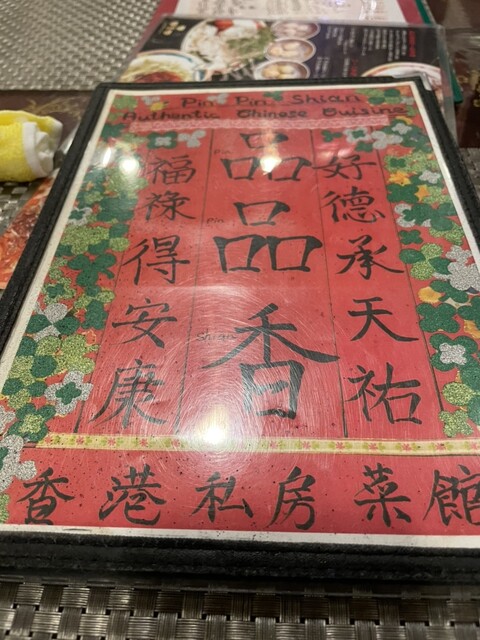 Pin Pin Shian
Authentic Chinese Cuisine
好德承天祐
Pin
品
Pin
品
Shian
香
福祿得安康
香港私房菜館